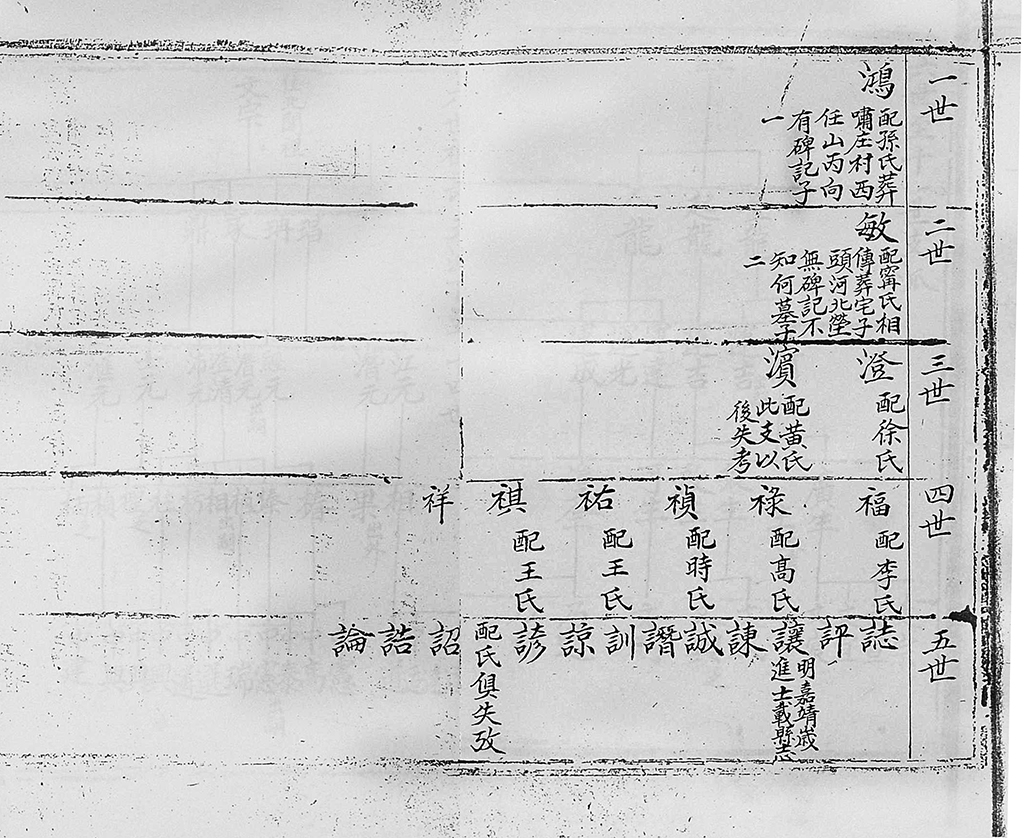 一世
鴻
配孫氏葬
嘯庄村西
任山丙向
有碑記子
一
二世
敏
配甯氏相
傳葬宅子
頭河北塋
無碑記不
知何墓子
二
三世
澄
配徐氏
濱
配黄氏
此支以
後失考
四世
福
配李氏
祿
配高氏
禎
配時氏
祐
配王氏
祺
配王氏
祥
五世
誌
評
讓
明嘉靖歲
進士載縣志
諫
誠
譖
訓
諒
諺
配氏俱失攷
詔
誥
論